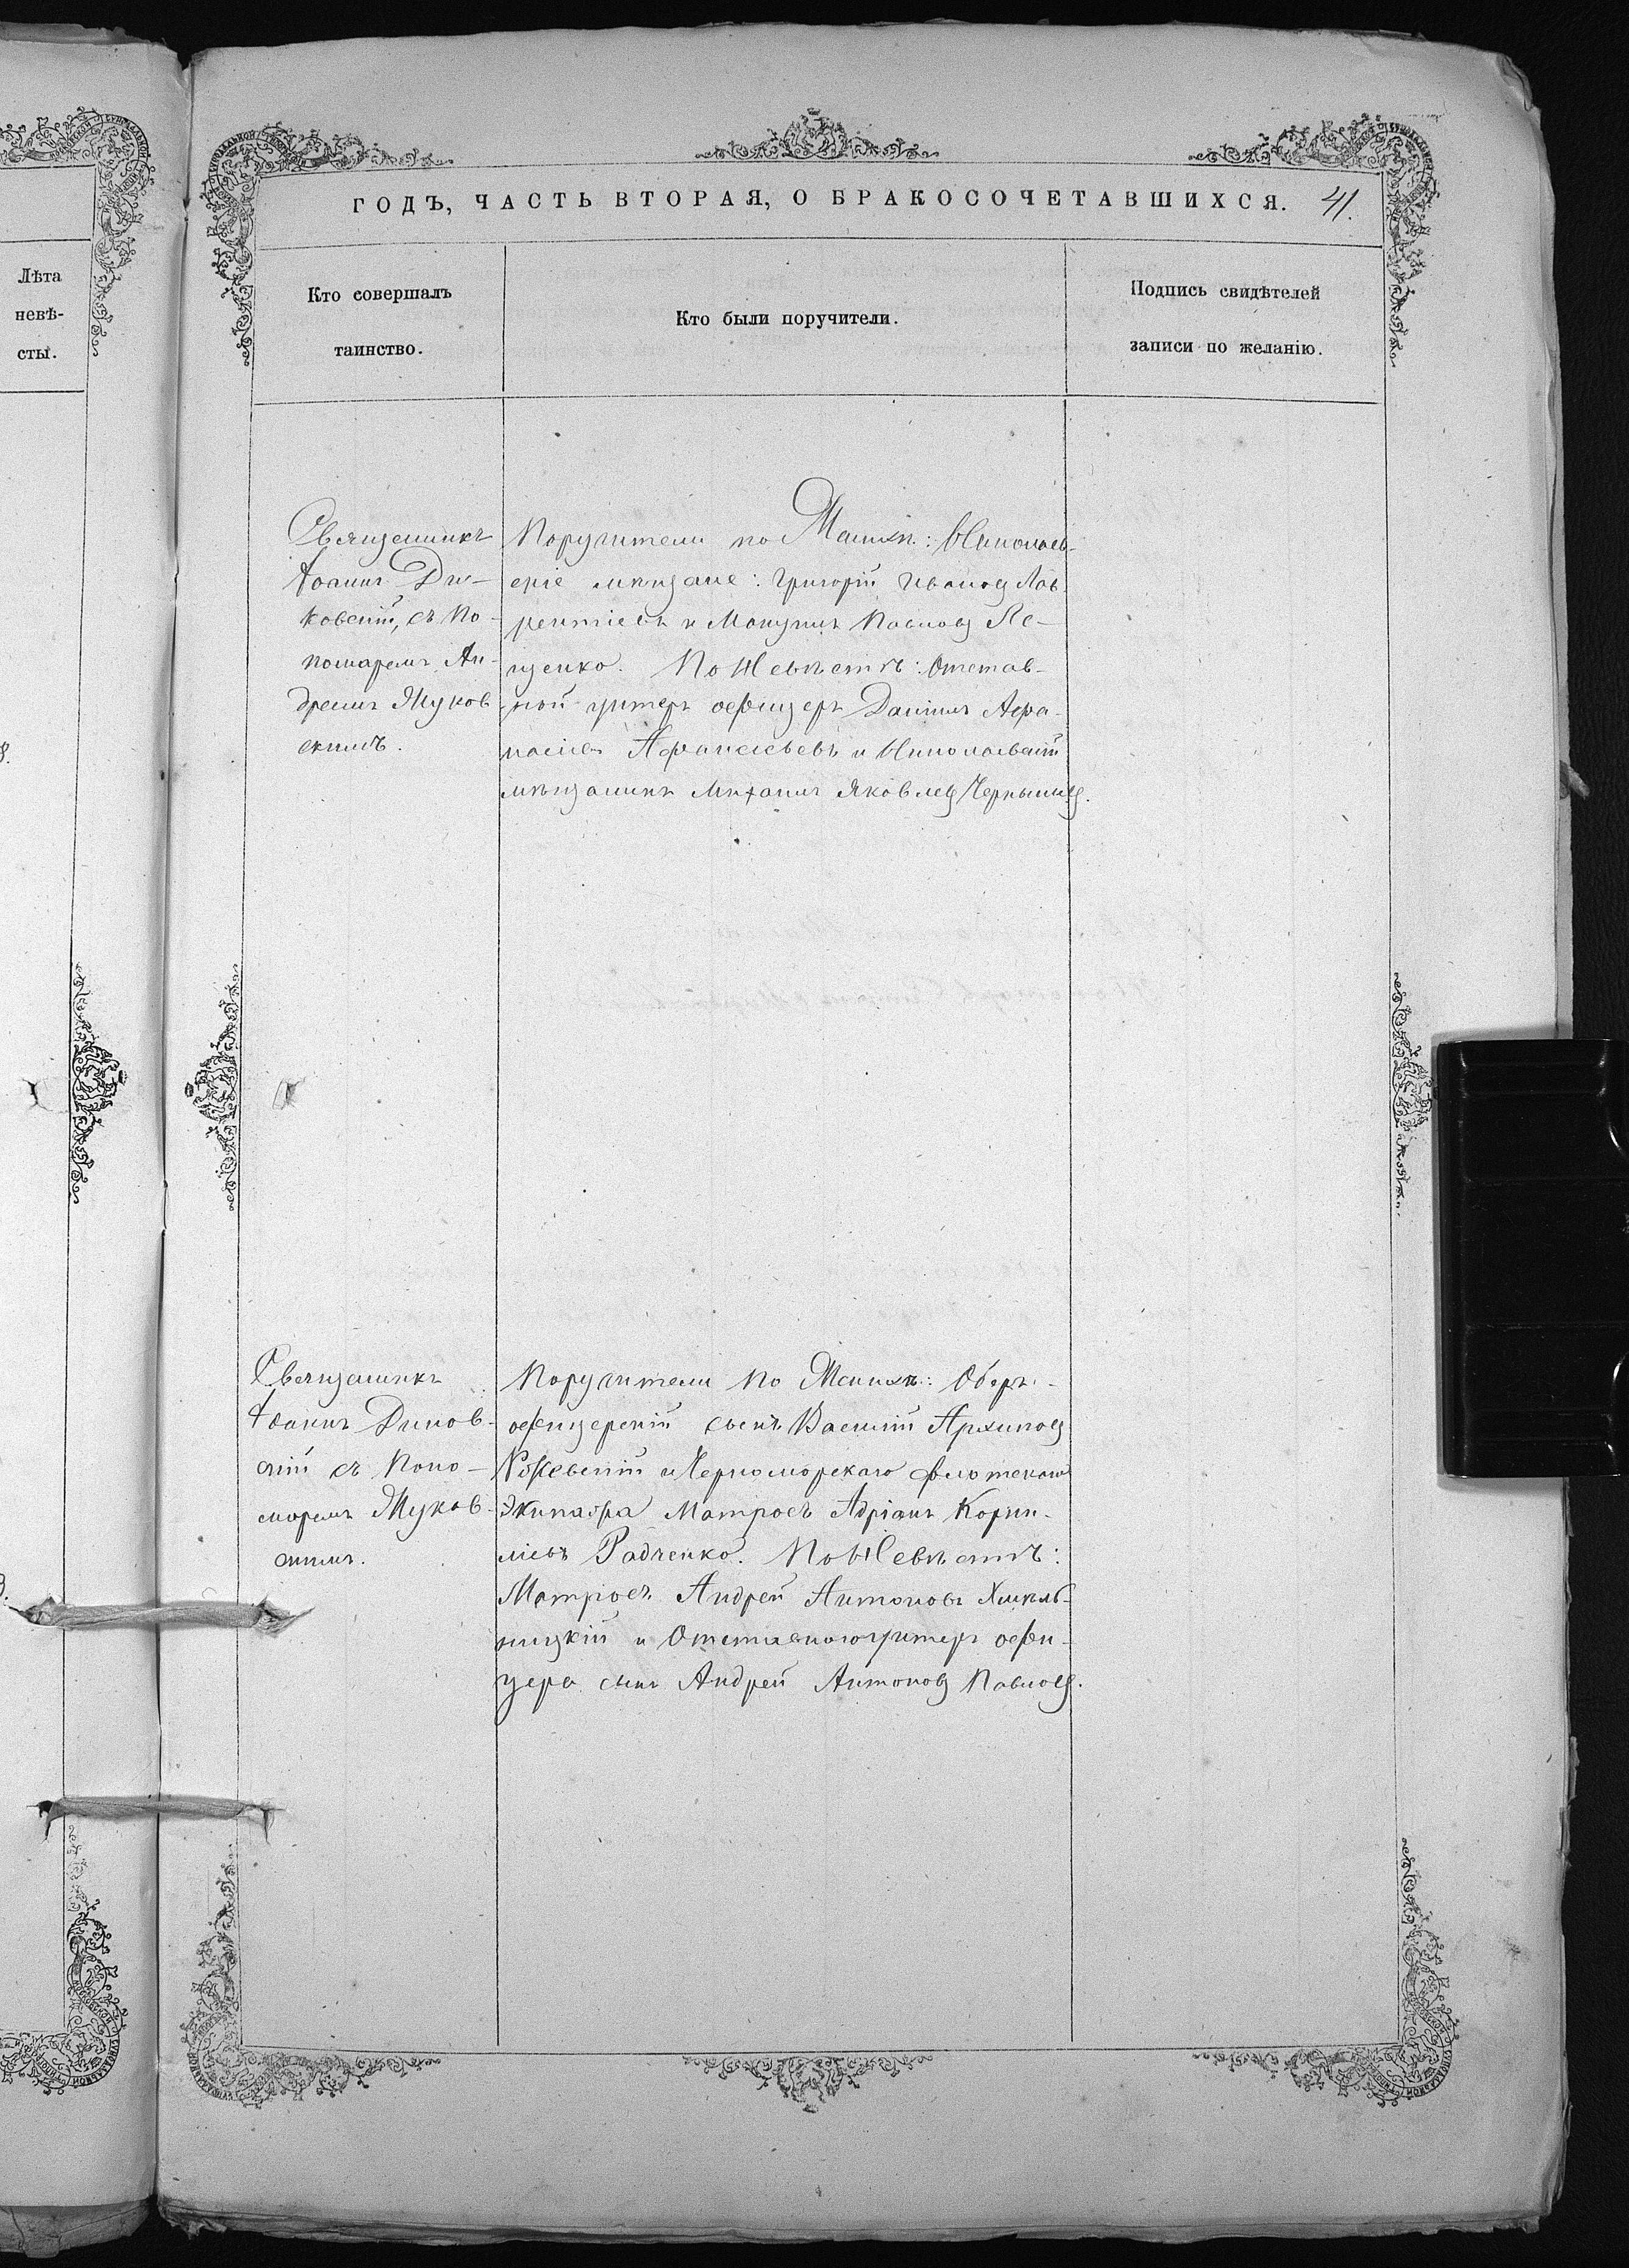 Лѣта
невѣ-
сты.
ГОДЪ, ЧАСТЬ ВТОРАЯ, О БРАКОСОЧЕТАВШИХСЯ. 41.
Кто совершалъ
таинство.
Кто были поручители.
Подпись свидѣтелей
записи по желанію.
Священникъ
Іоаннъ Ди-
ковскій, съ По-
номаремъ Ан-
дреемъ Жуков
скимъ.
Поручители по Женихѣ: Николаев-
скіе мѣщане: Григорій Ивановъ Лав
рентіевъ и Павловъ
щенко. По Невѣстѣ: Отстав-
ной унтеръ офицеръ Даніилъ Афа-
насіевъ Афанасьевъ и Николаевскій
мѣщанинъ Михаилъ Яковлевъ
Священникъ
Іоаннъ Диков-
скій съ Поно-
маремъ Жуков-
скимъ.
Поручители по Женихѣ: Оберъ-
офицерскій сынъ Василій Архиповъ
и Черноморскаго флотскаго
Экипажа Матросъ Адріанъ Корни-
ліевъ Радченко. По Невѣстѣ:
Матросъ Андрей Антоновъ Хмѣль-
ницкій и Отставнаго унтеръ офи-
цера сынъ Андрей Антоновъ Павловъ.